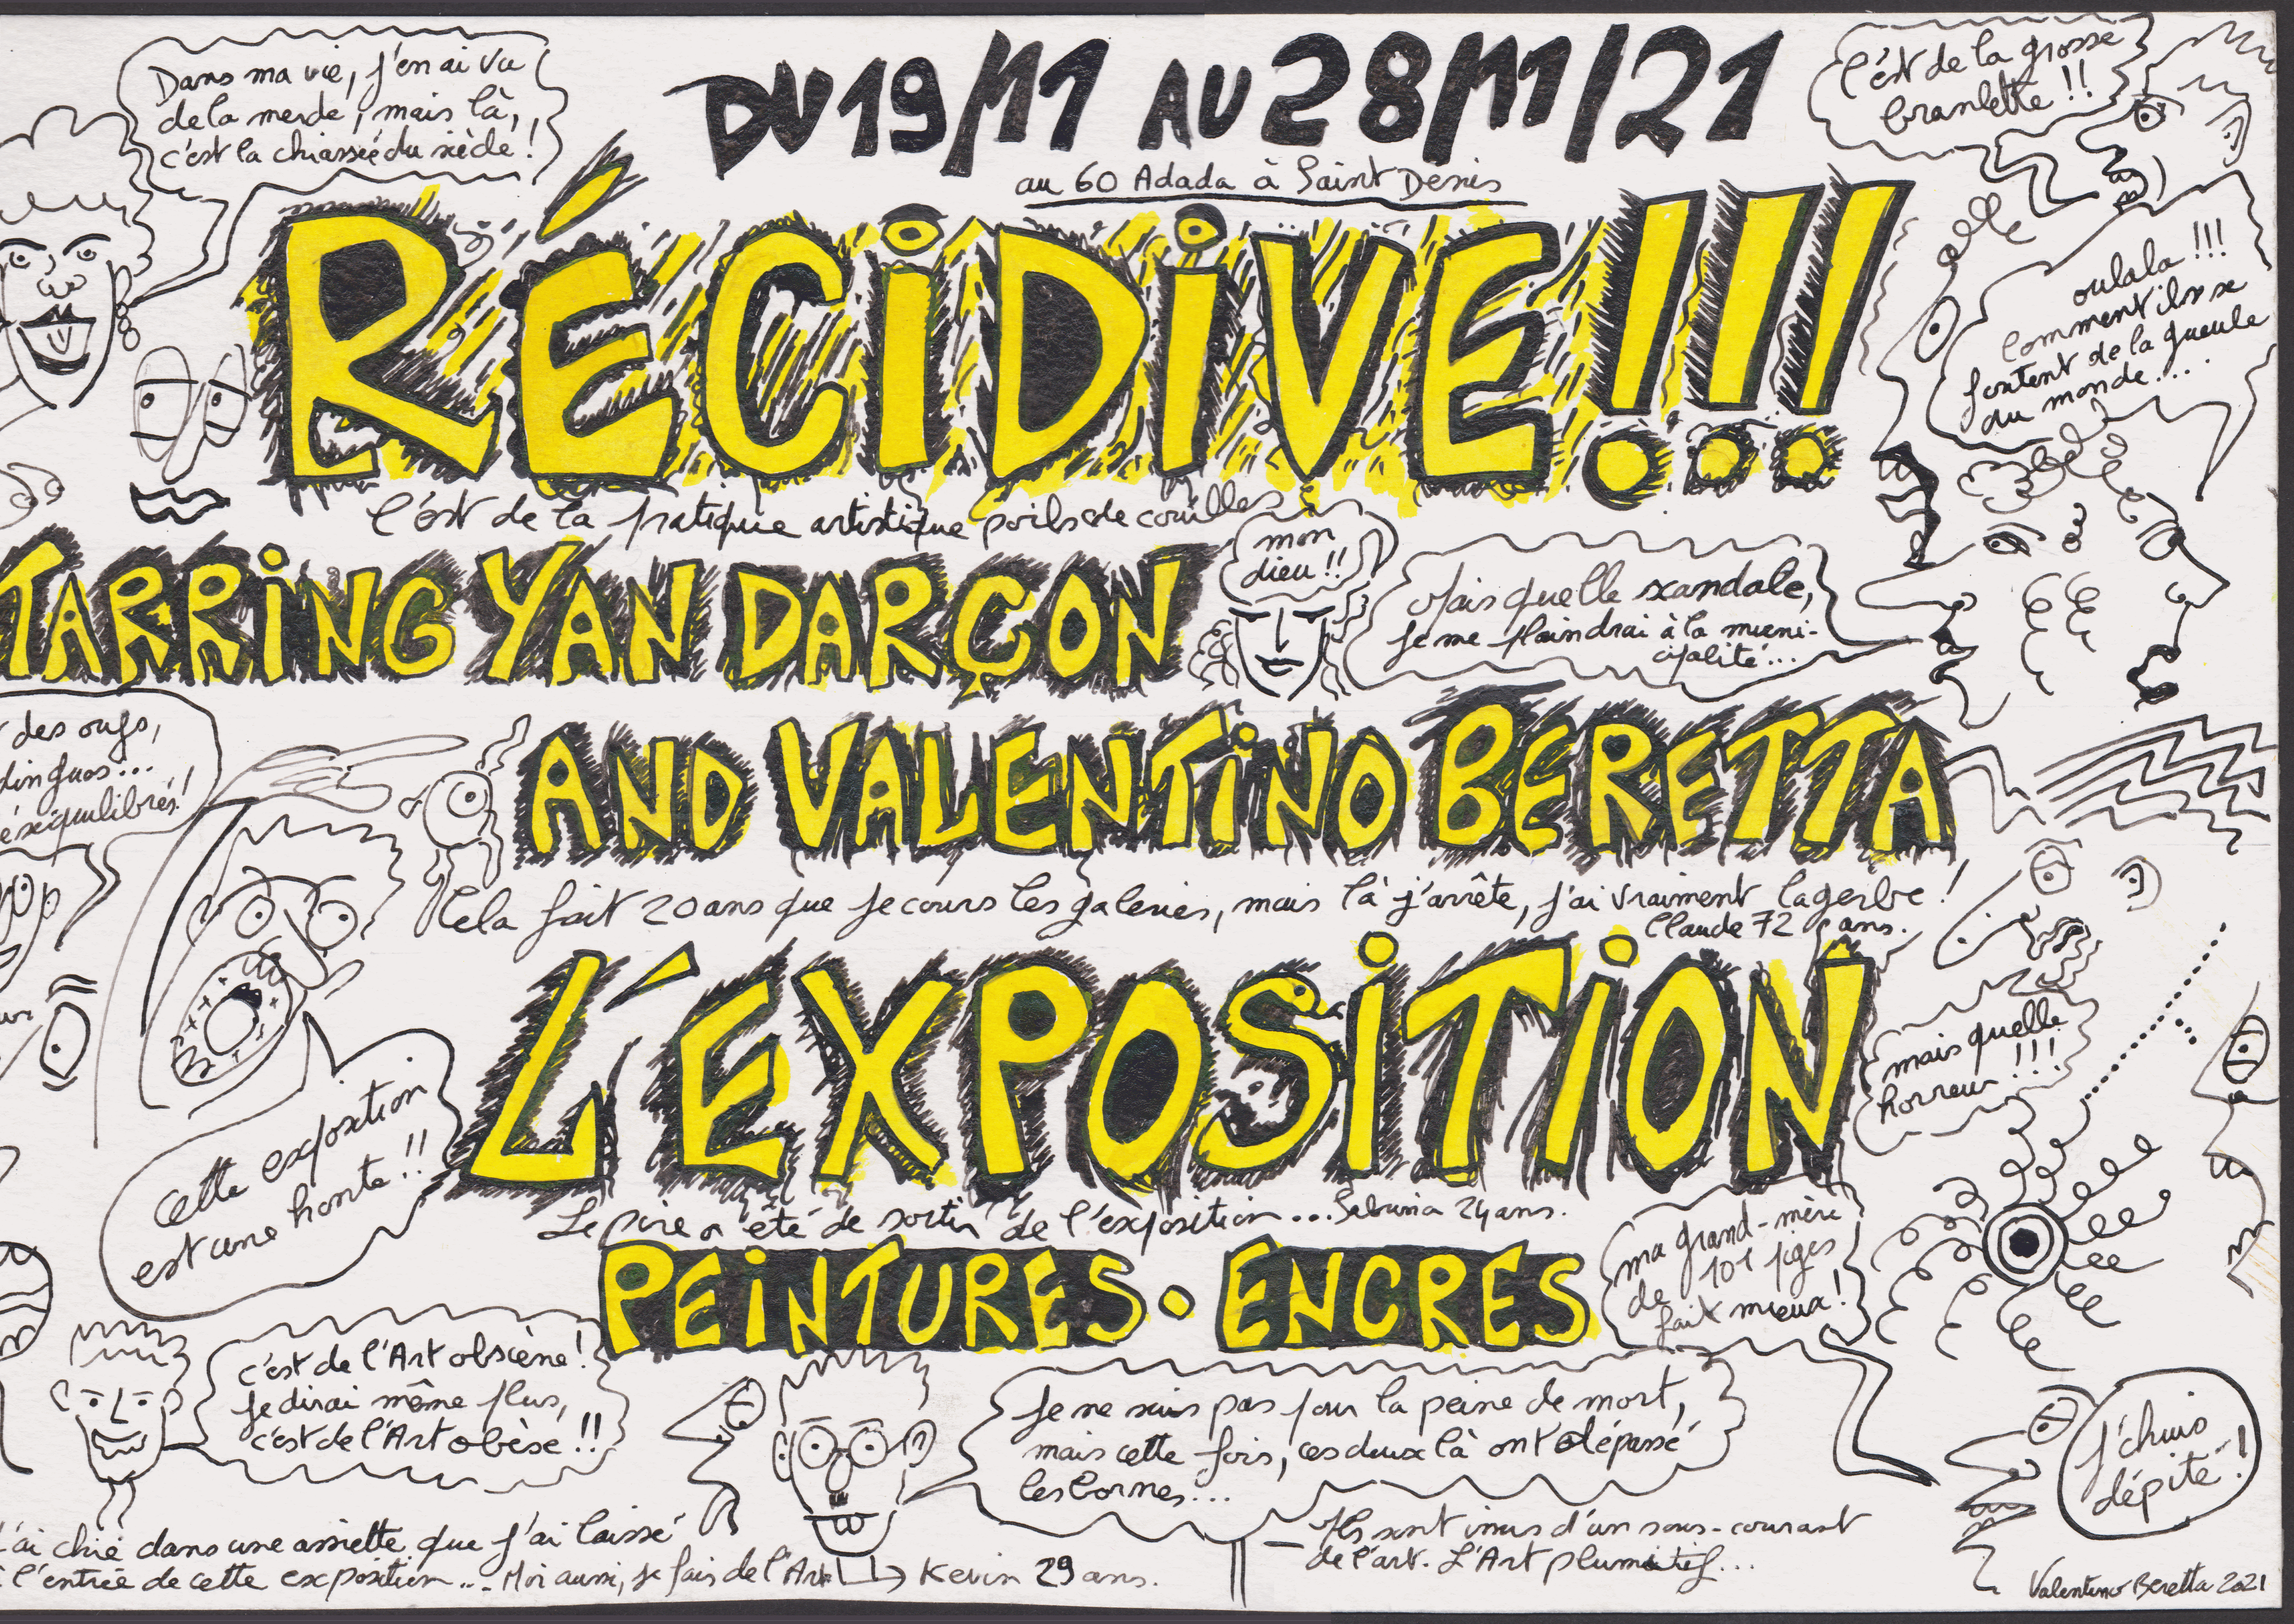 Dans ma vie, j'en ai vu
de la merde, mais là,
c'est la chiassée du siècle !
DU 19/11 AU 28/11/21
au 60 Adada à Saint Denis
C'est de la grosse
branlette !!
RÉCiDiVE!!!
oulala !!!
comment ils se
foutent de la gueule
du monde...
C'est de la pratique artistique poils de couilles
TARRiNG YAN DARÇON
mon
dieu !!
Mais quelle scandale,
je me plaindrai à la muni-
cipalité...
des oufs,
dingues...
éséquilibrés !
AND VALENTiNO BERETTA
Cela fait 20 ans que je cours les galeries, mais là j'arrête, j'ai vraiment la gerbe !
Claude 72 ans.
L'EXPOSiTiON
mais quelle
horreur !!!
Cette exposition
est une honte !!
Le pire a été de sortir de l'exposition... Sabrina 24 ans.
PEiNTURES • ENCRES
ma grand-mère
de 101 piges
fait mieux !
c'est de l'Art obscène !
je dirai même plus,
c'est de l'Art obèse !!
Je ne suis pas pour la peine de mort,
mais cette fois, ces deux là ont dépassé
les bornes...
j'chuis
dépité !
J'ai chié dans une assiette que j'ai laissé
à l'entrée de cette exposition... Moi aussi, je fais de l'Art
Kevin 29 ans.
- Ils sont issus d'un sous-courant
de l'art. L'Art plumitif...
Valentino Beretta 2021